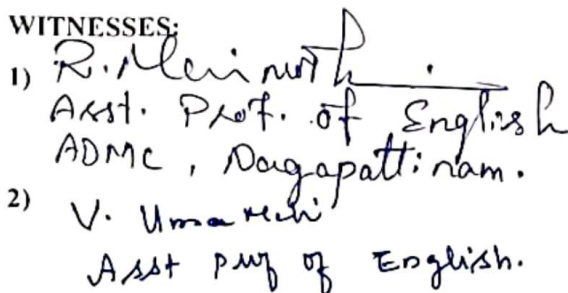 WITNESSES:
1) R.
Asst. Prof. of English
ADMC, Nagapattinam.
2) V.
Asst Prof of English.